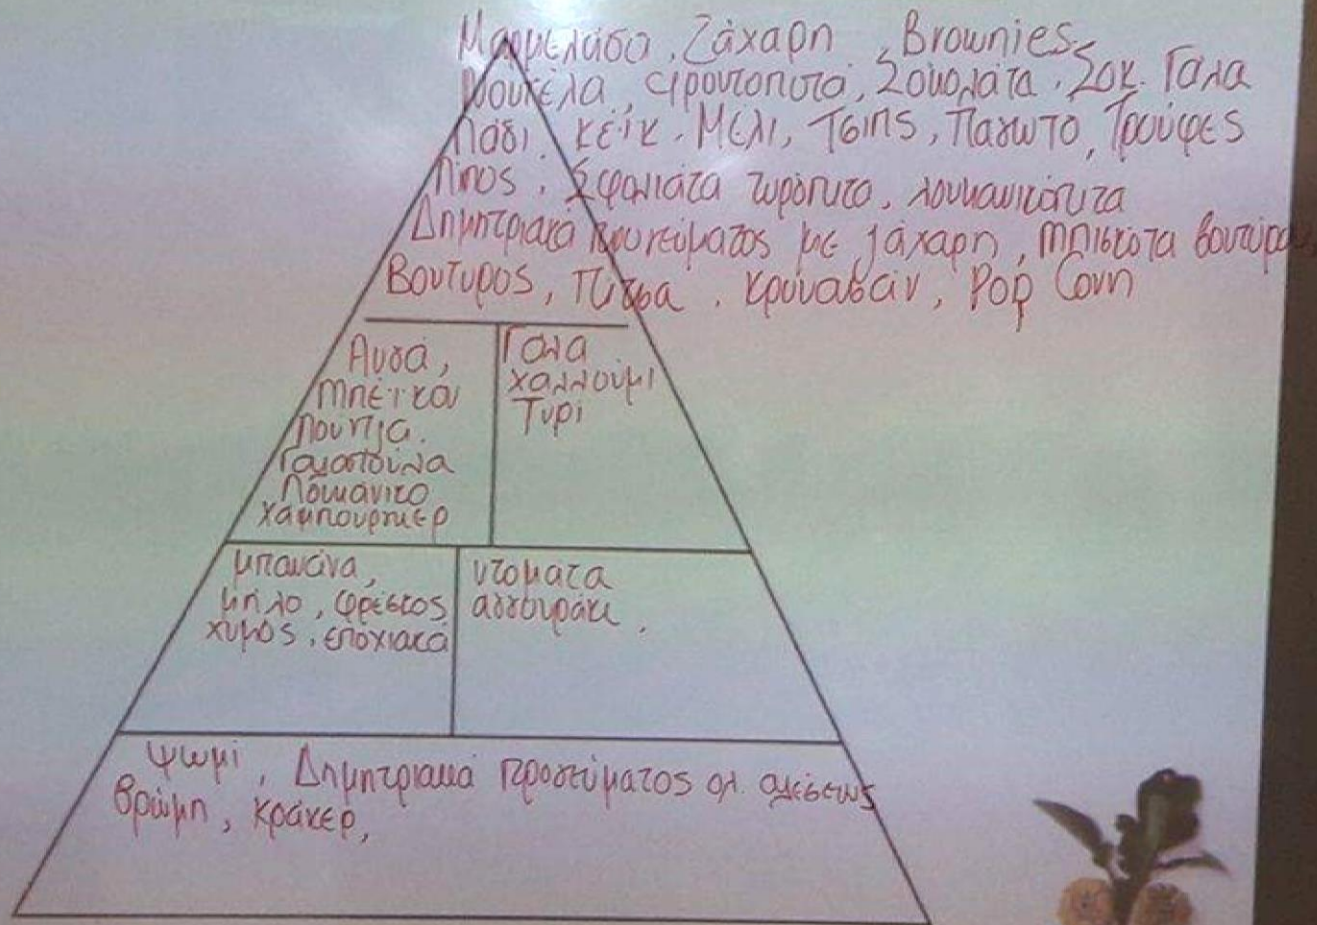 Μαρμελάδα, Ζάχαρη, Brownies
Νουτέλα, φρουτοπιτα, Σοκολάτα, Σοκ. Γαλα
Λάδι, κέικ, Μέλι, Τσιπς, Παγωτο, Τρούφες
Λιπος, Σφολιάτα τυρόπιτα, λουκανικόπιτα
Δημητριακά προγεύματος με ζάχαρη, μπισκότα βουτύρου
Βουτυρος, Πιτσα, κρουασάν, Pop Corn
Αυγά,
Μπέικον
Λουντζα.
Γαλοπούλα
Λουκάνικο
χαμπουρκερ
Γαλα
χαλλούμι
Τυρί
μπανάνα,
μηλο, φρέσκος
χυμός, εποχιακά
ντοματα
αγγουράκι,
ψωμι, Δημητριακά προγεύματος ολ. αλέσεως
βρώμη, κράκερ,